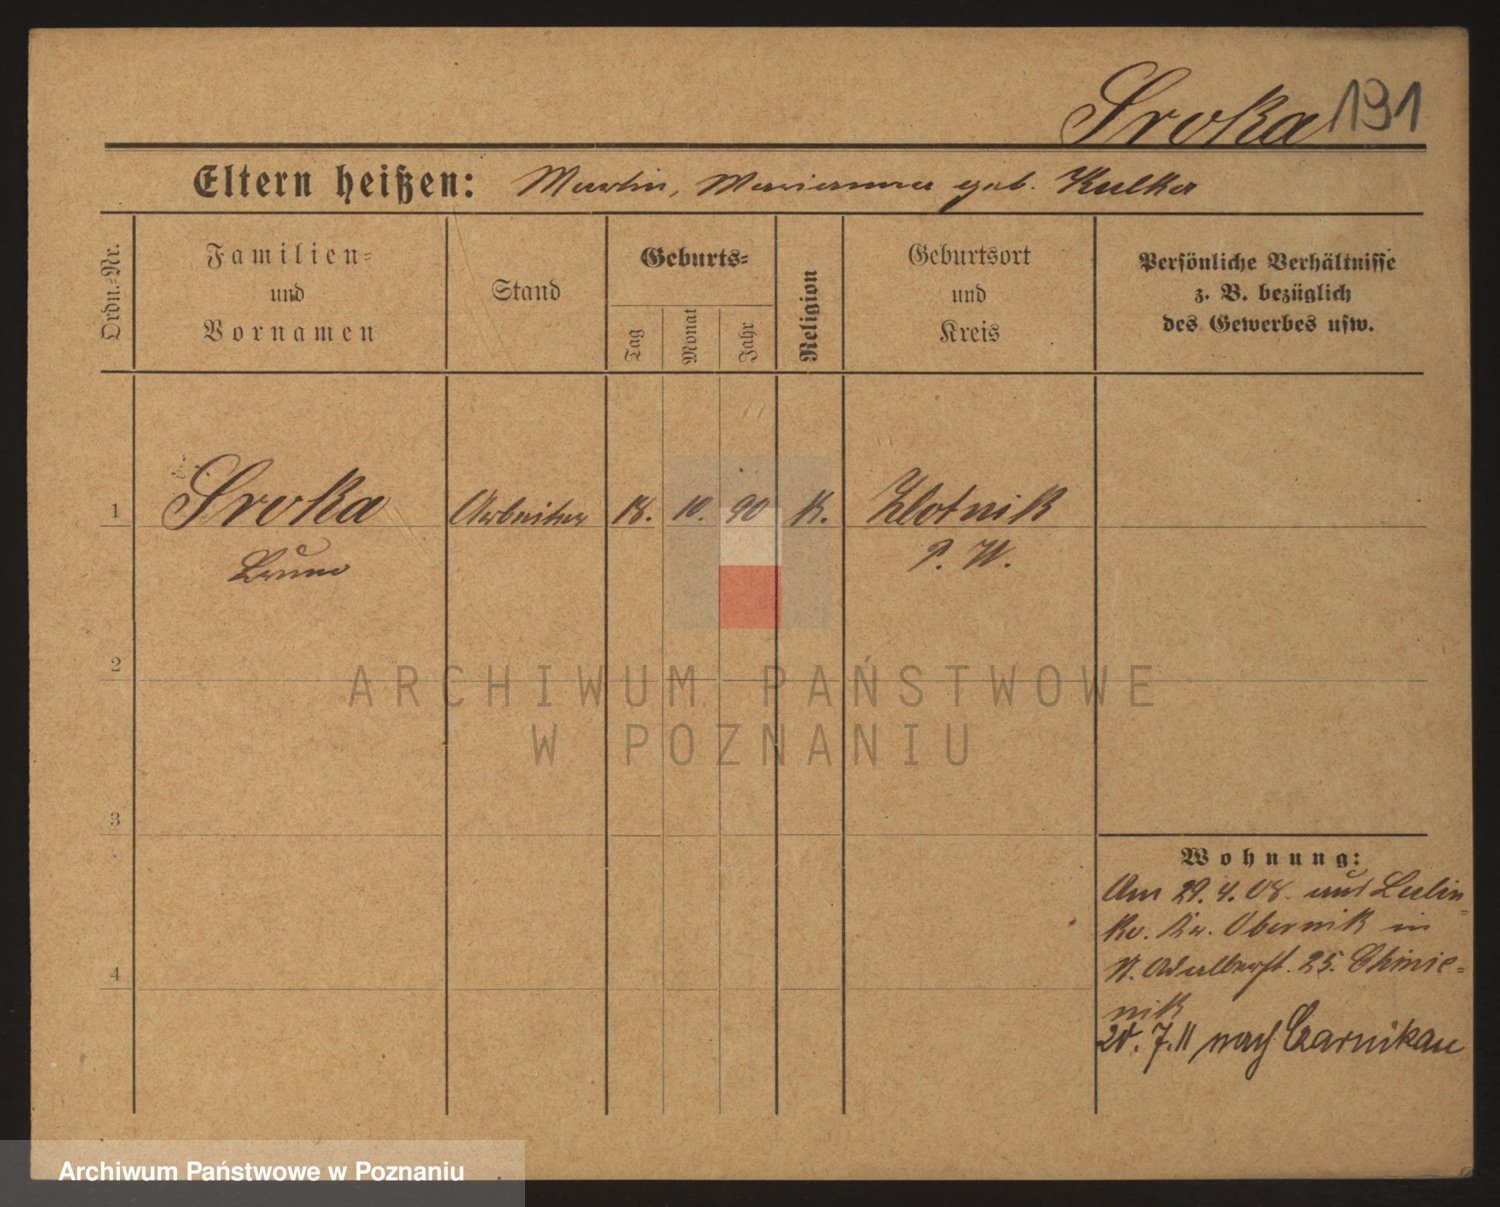 Sroka 191
Eltern heißen: Martin, Marianna geb. Kulka
Ordn.-Nr.
Familien-
und
Vornamen
Stand
Geburts-
Tag
Monat
Jahr
Religion
Geburtsort
und
Kreis
Persönliche Verhältnisse
z. B. bezüglich
des Gewerbes usw.
1 Sroka Arbeiter 18. 10. 90 K. Zlotnik
Bruno P. W.
2
3
4
Wohnung:
Am 29. 4. 08. aus Lulin-
ko. Kr. Obernik in
25.
nik
7. 11 nach Czarnikau
ARCHIWUM PAŃSTWOWE
W POZNANIU
Archiwum Państwowe w Poznaniu